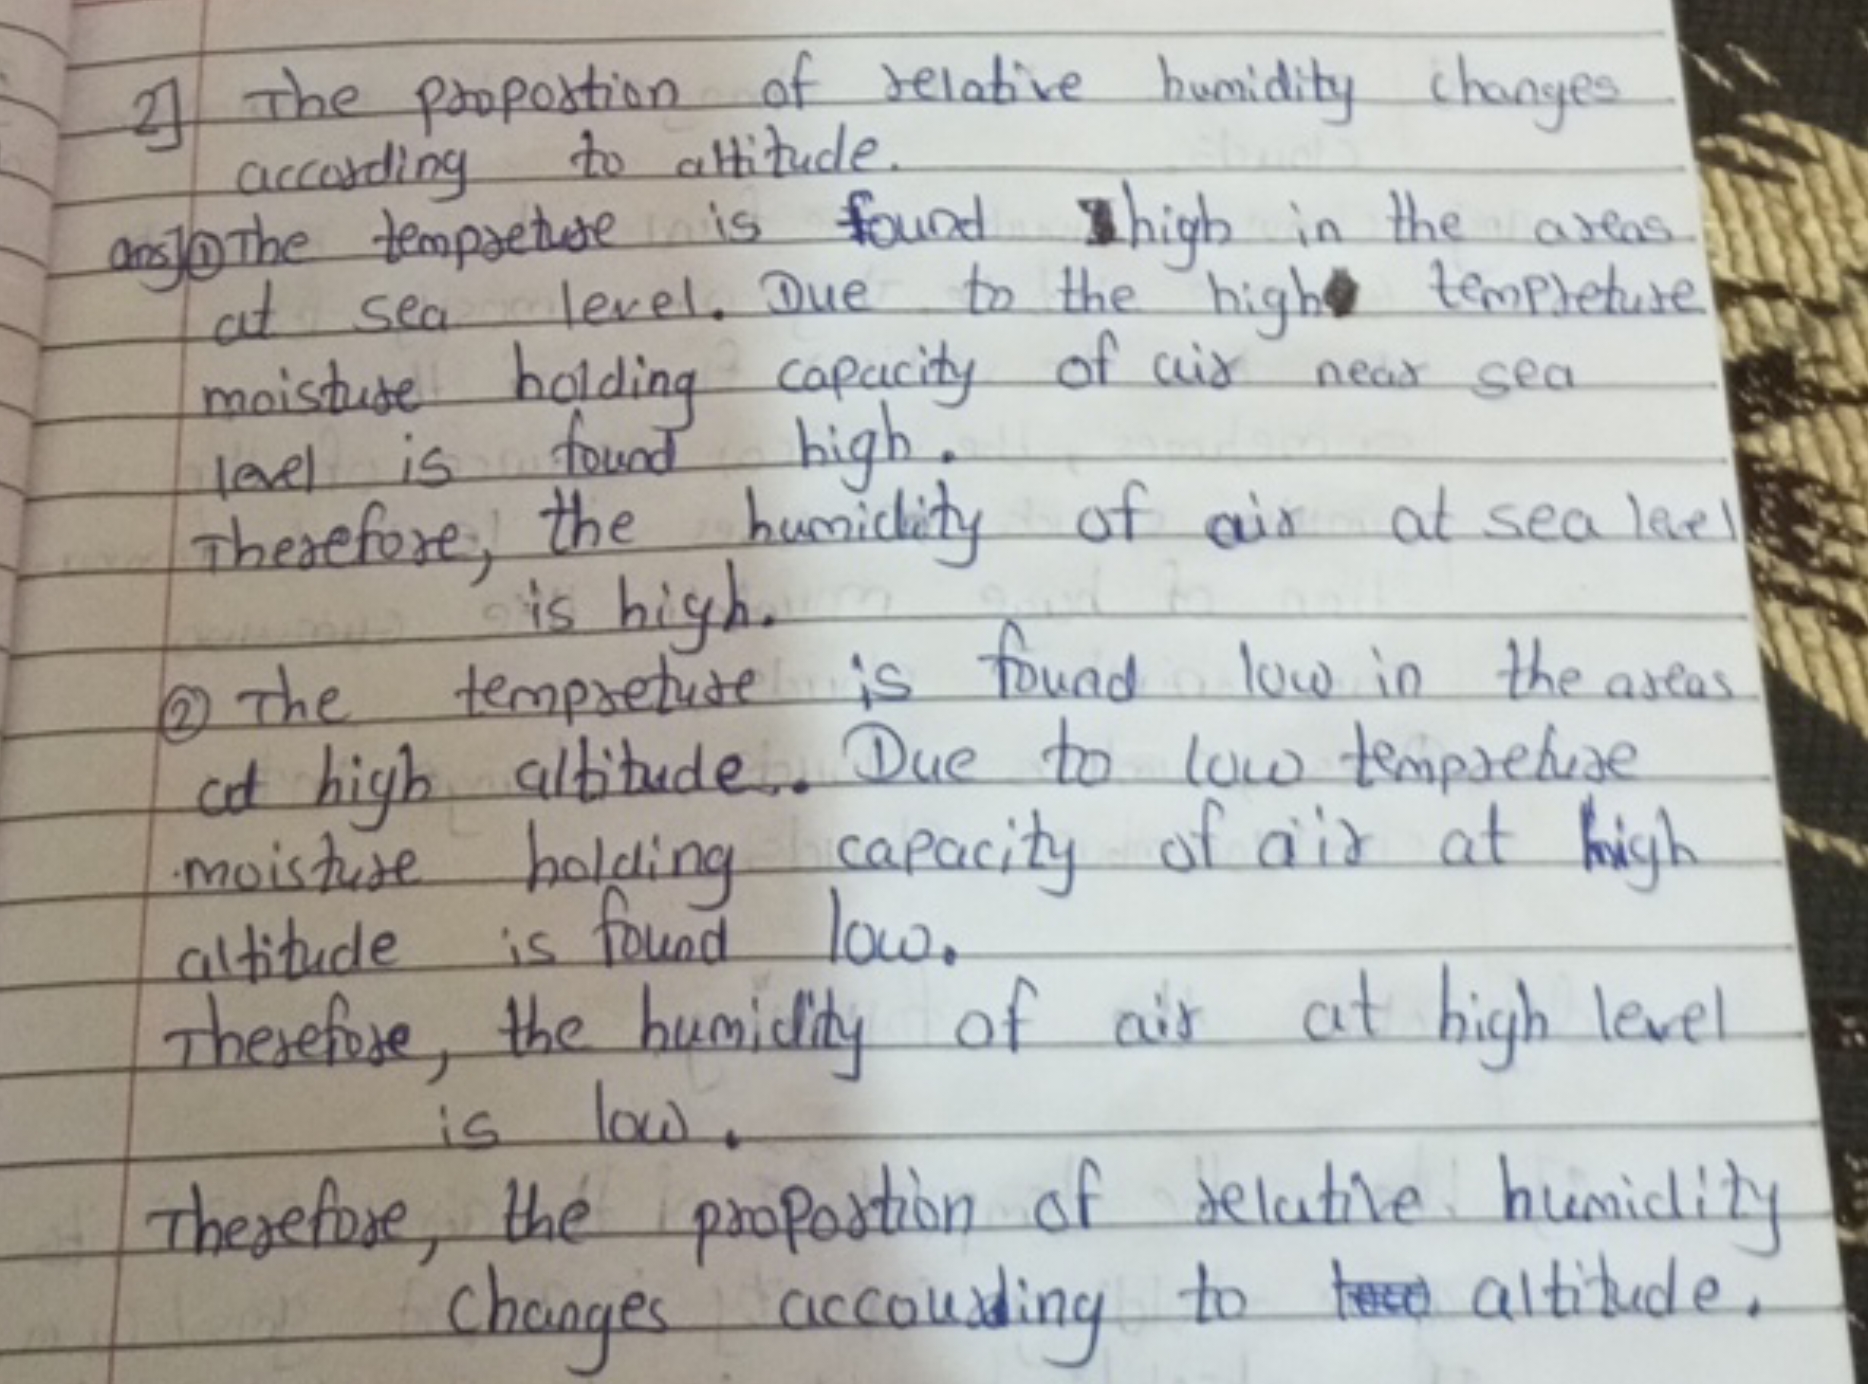 2] The proportion of relative humidity changes
according to altitude.
ans] ① The tempreture is found high in the areas
at sea level. Due to the high tempreture
moisture holding capacity of air near sea
level is found high.
Therefore, the humidity of air at sea level
is high.
② The tempreture is found low in the areas
at high altitude. Due to low tempreture
moisture holding capacity of air at high
altitude is found low.
Therefore, the humidity of air at high level
is low.
Therefore, the proportion of relative humidity
changes accourding to altitude.